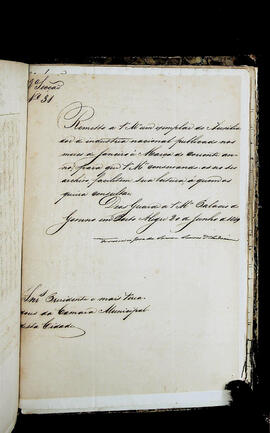 Secção
Nº 31
Remetto a V Mces um exemplar do Auxilia
dor da industria nacional publicado nos
meses de Janeiro á Março do corrente an
no, para que V Mces conservando-os no seo
archivo, facilitem sua leitura, á quem os
queira consultar.
Deos Guarde a V Mces Palacio do
Governo em Porto Alegre 20 de Junho de
Snrs Presidente e mais Verea
dores da Camara Municipal
desta Cidade